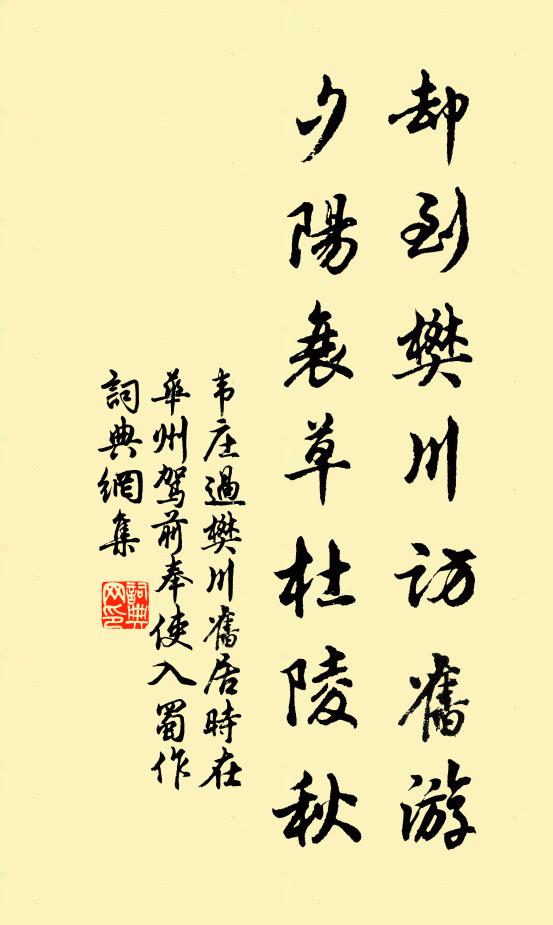 却到樊川訪舊游
夕陽衰草杜陵秋
韦庄過樊川舊居時在
華州驾前奉使入蜀作
詞典網集
詞典
网印